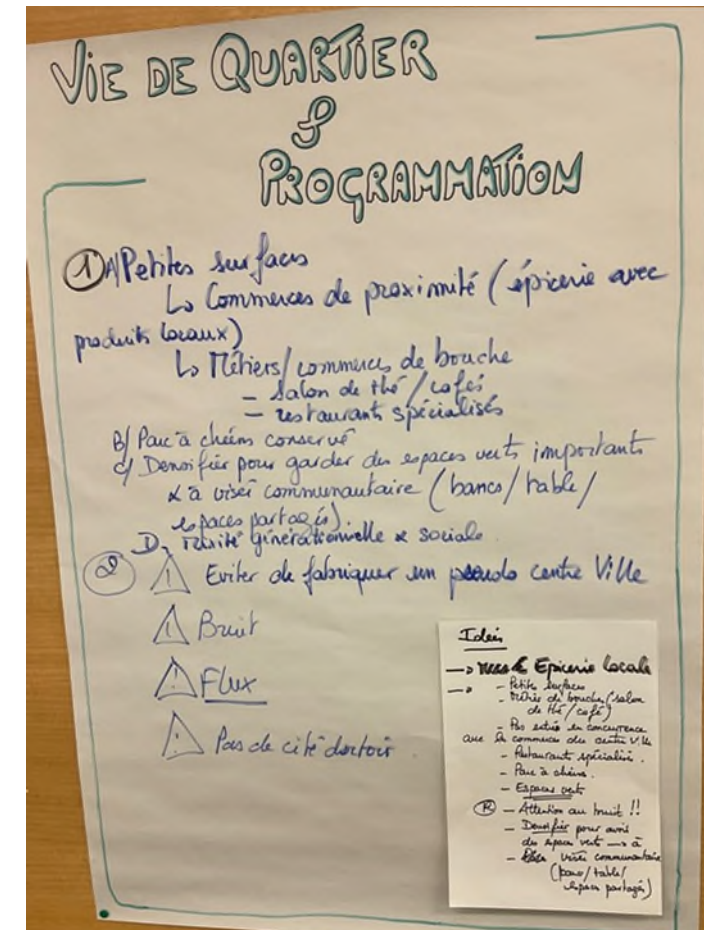 VIE DE QUARTIER
&
PROGRAMMATION
1 A/ Petites surfaces
↳ Commerces de proximité (épicerie avec
produits locaux)
↳ Métiers/commerces de bouche
- Salon de thé/cafés
- restaurants spécialisés
B/ Parc à chiens conservé
C/ Densifier pour garder des espaces verts important
& à visée communautaire (bancs/table/
espaces partagés).
D, Mixité générationnelle & sociale.
2 ⚠ Eviter de fabriquer un pseudo centre Ville
⚠ Bruit
⚠ Flux
⚠ Pas de cité dortoir.
Idées
→ Epicerie locale
→ - Petites surfaces
- Métiers de bouche (salon
de thé/café)
- Pas entrée en concurrence
avec le commerce du centre Ville
- Restaurants spécialisé.
- Parc à chiens.
- Espaces verts
R - Attention au bruit !!
- Densifier pour avoir
des espaces verts → à
- visée communautaire
(banc/table/
espaces partagés)